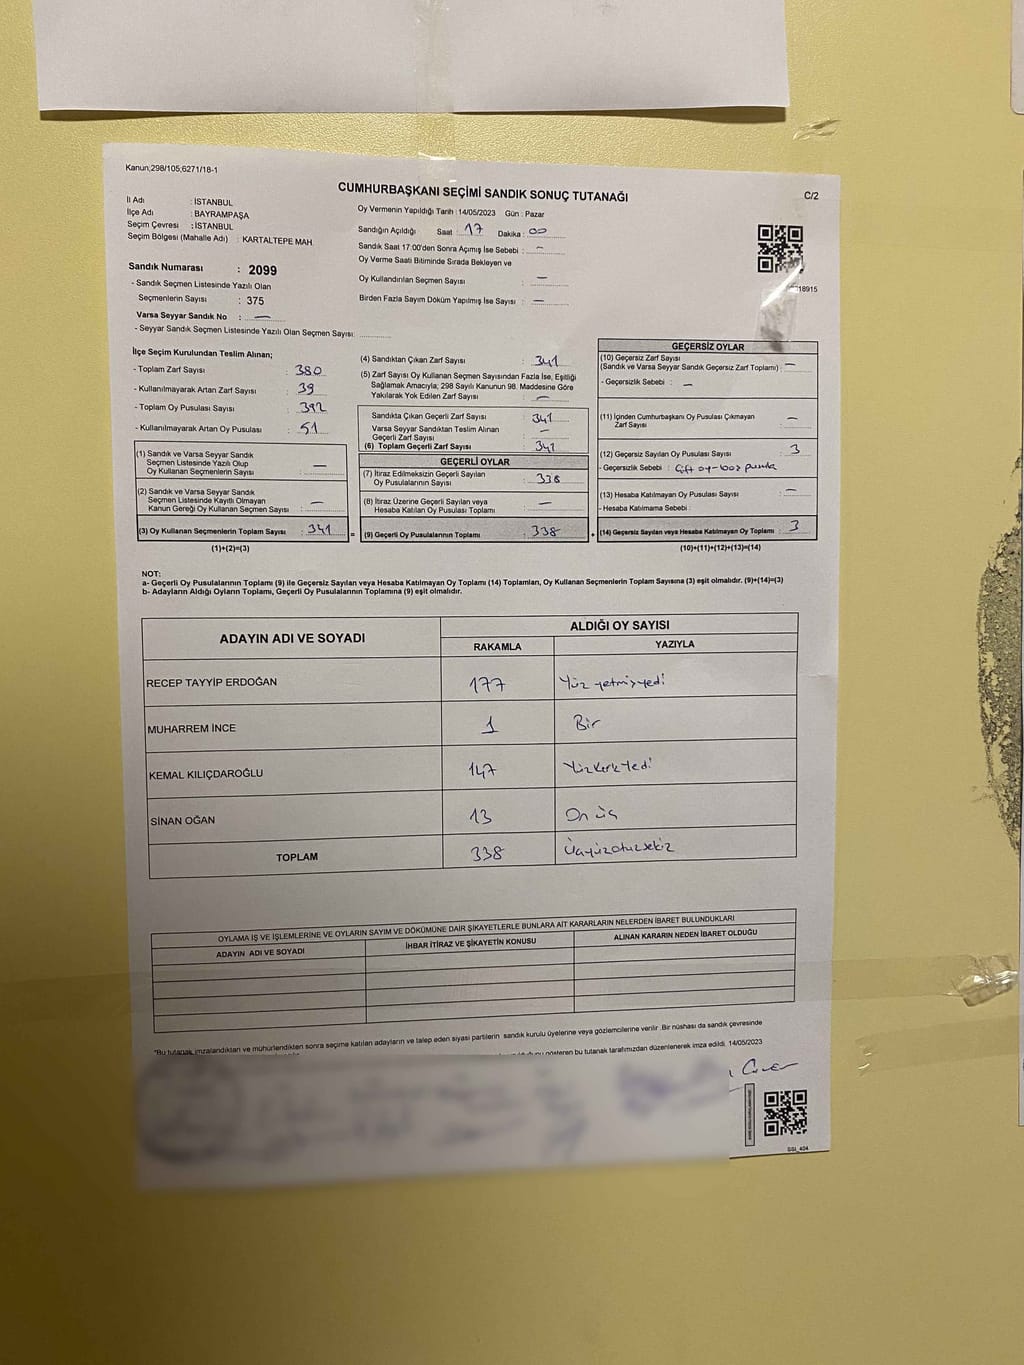 Kanun;298/105;6271/18-1
CUMHURBAŞKANI SEÇİMİ SANDIK SONUÇ TUTANAĞI
C/2
İl Adı : İSTANBUL
İlçe Adı : BAYRAMPAŞA
Seçim Çevresi : İSTANBUL
Seçim Bölgesi (Mahalle Adı) : KARTALTEPE MAH.
Oy Vermenin Yapıldığı Tarih : 14/05/2023 Gün : Pazar
Sandığın Açıldığı Saat : 17 Dakika : 00
Sandık Saat 17:00'den Sonra Açımış İse Sebebi : —
Oy Verme Saati Bitiminde Sırada Bekleyen ve
Oy Kullandırılan Seçmen Sayısı : —
Birden Fazla Sayım Döküm Yapılmış İse Sayısı : —
18915
Sandık Numarası : 2099
- Sandık Seçmen Listesinde Yazılı Olan
Seçmenlerin Sayısı : 375
Varsa Seyyar Sandık No : —
- Seyyar Sandık Seçmen Listesinde Yazılı Olan Seçmen Sayısı:
İlçe Seçim Kurulundan Teslim Alınan;
- Toplam Zarf Sayısı : 380
- Kullanılmayarak Artan Zarf Sayısı : 39
- Toplam Oy Pusulası Sayısı : 392
- Kullanılmayarak Artan Oy Pusulası : 51
(1) Sandık ve Varsa Seyyar Sandık
Seçmen Listesinde Yazılı Olup
Oy Kullanan Seçmenlerin Sayısı : —
(2) Sandık ve Varsa Seyyar Sandık
Seçmen Listesinde Kayıtlı Olmayan
Kanun Gereği Oy Kullanan Seçmen Sayısı : —
(3) Oy Kullanan Seçmenlerin Toplam Sayısı : 341
(1)+(2)=(3)
(4) Sandıktan Çıkan Zarf Sayısı : 341
(5) Zarf Sayısı Oy Kullanan Seçmen Sayısından Fazla İse, Eşitliği
Sağlamak Amacıyla; 298 Sayılı Kanunun 98. Maddesine Göre
Yakılarak Yok Edilen Zarf Sayısı : —
Sandıkta Çıkan Geçerli Zarf Sayısı : 341
Varsa Seyyar Sandıktan Teslim Alınan
Geçerli Zarf Sayısı : —
(6) Toplam Geçerli Zarf Sayısı : 341
GEÇERLİ OYLAR
(7) İtiraz Edilmeksizin Geçerli Sayılan
Oy Pusulalarının Sayısı : 338
(8) İtiraz Üzerine Geçerli Sayılan veya
Hesaba Katılan Oy Pusulası Toplamı : —
= (9) Geçerli Oy Pusulalarının Toplamı : 338
GEÇERSİZ OYLAR
(10) Geçersiz Zarf Sayısı
(Sandık ve Varsa Seyyar Sandık Geçersiz Zarf Toplamı) : —
- Geçersizlik Sebebi : —
(11) İçinden Cumhurbaşkanı Oy Pusulası Çıkmayan
Zarf Sayısı : —
(12) Geçersiz Sayılan Oy Pusulası Sayısı : 3
- Geçersizlik Sebebi : Çift oy-
(13) Hesaba Katılmayan Oy Pusulası Sayısı : —
- Hesaba Katılmama Sebebi :
+ (14) Geçersiz Sayılan veya Hesaba Katılmayan Oy Toplamı : 3
(10)+(11)+(12)+(13)=(14)
NOT:
a- Geçerli Oy Pusulalarının Toplamı (9) ile Geçersiz Sayılan veya Hesaba Katılmayan Oy Toplamı (14) Toplamları, Oy Kullanan Seçmenlerin Toplam Sayısına (3) eşit olmalıdır. (9)+(14)=(3)
b- Adayların Aldığı Oyların Toplamı, Geçerli Oy Pusulalarının Toplamına (9) eşit olmalıdır.
ADAYIN ADI VE SOYADI
ALDIĞI OY SAYISI
RAKAMLA YAZIYLA
RECEP TAYYİP ERDOĞAN 177 Yüz yetmişyedi
MUHARREM İNCE 1 Bir
KEMAL KILIÇDAROĞLU 147 Yüzkırkyedi
SİNAN OĞAN 13 On üç
TOPLAM 338 Üçyüzotuzsekiz
OYLAMA İŞ VE İŞLEMLERİNE VE OYLARIN SAYIM VE DÖKÜMÜNE DAİR ŞİKAYETLERLE BUNLARA AİT KARARLARIN NELERDEN İBARET BULUNDUKLARI
ADAYIN ADI VE SOYADI İHBAR İTİRAZ VE ŞİKAYETİN KONUSU ALINAN KARARIN NEDEN İBARET OLDUĞU
*Bu tutanak imzalandıktan ve mühürlendikten sonra seçime katılan adayların ve talep eden siyasi partilerin sandık kurulu üyelerine veya gözlemcilerine verilir .Bir nüshası da sandık çevresinde
gösteren bu tutanak tarafımızdan düzenlenerek imza edildi. 14/05/2023